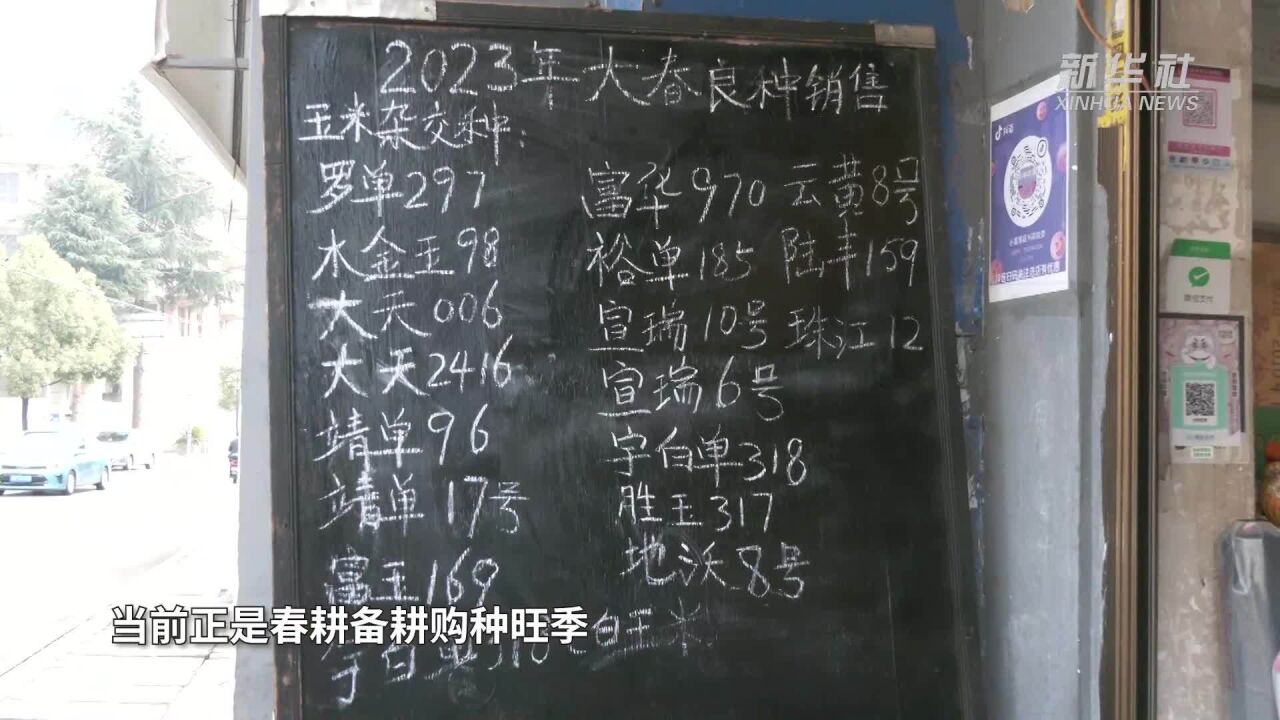 2023年大春良种销售
玉米杂交种:
罗单297 富华970 云黄8号
水金王98 裕单185 陆丰159
大天006 宣瑞10号 珠江12
大天2416 宣瑞6号
靖单96 宇白单318
靖单17号 胜玉317
富玉169 地沃8号
宇白单318(白玉米
当前正是春耕备耕购种旺季
新华社
XINHUA NEWS
抖音
微信支付